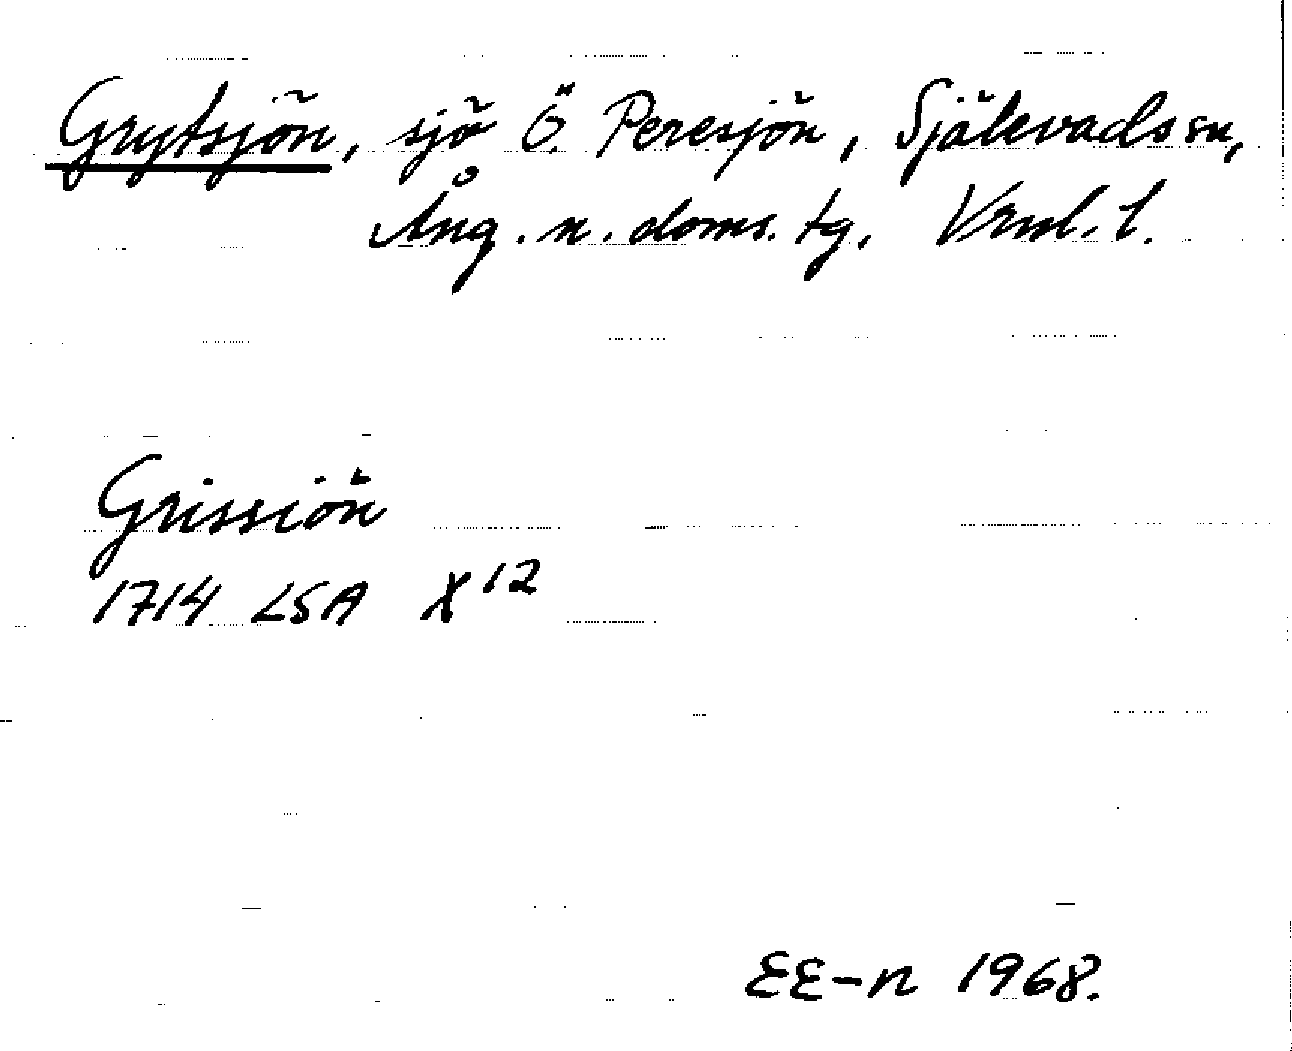 Grytsjön, sjö Ö. Peresjön, Själevads sn,
Ång. n. doms. tg. Vrnl. l.
Grissiön
1714 LSA X 12
EE-n 1968.